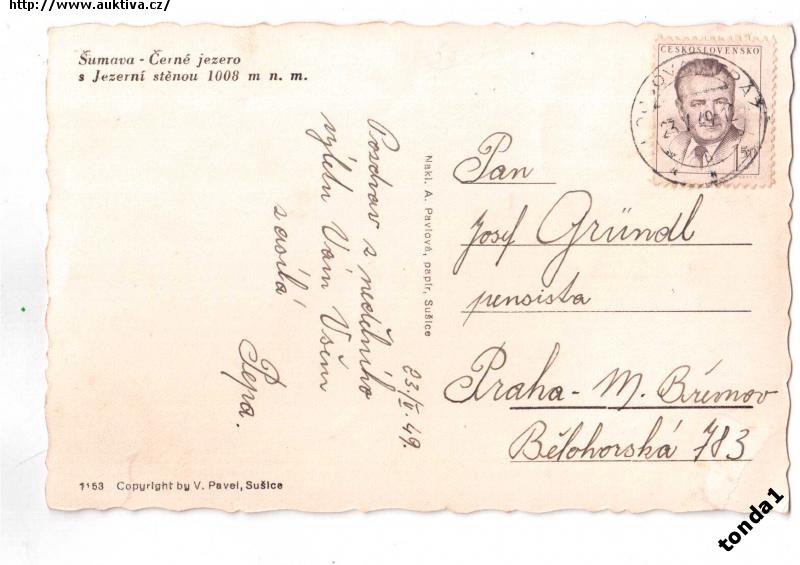 http://www.auktiva.cz/
Šumava - Černé jezero
s Jezerní stěnou 1008 m n. m.
ČESKOSLOVENSKO
23. V. 49
1.50
Pozdrav z nedělního
výletu Vám Všem
zasílá
Pepa.
23./V. 49.
Nakl. A. Pavlová, papír, Sušice
Pan
Josef Gründl
pensista
Praha - M. Břevnov
Bělohorská 783
1153 Copyright by V. Pavel, Sušice
tonda1